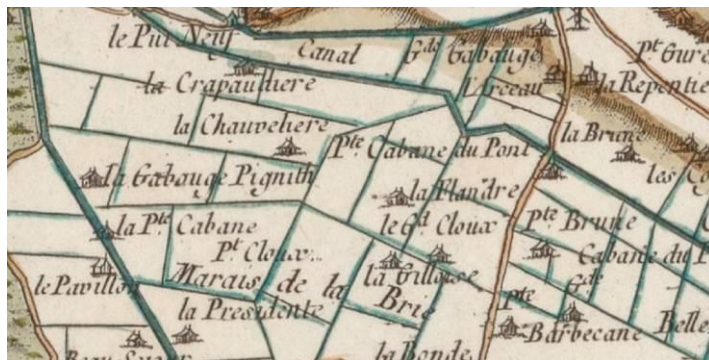 le Puit Neuf
Canal
Gds Gabauges
Pt Gure
la Crapaudiere
l'Arceau
la Repentie
la Chauveliere
la Brune
Pte Cabane du Pont
la Gabauge Pignith
la Flandre
les Co
la Pte Cabane
le Gd Cloux
Pte Brune
Pt Cloux
Cabane du P
le Pavillon
Marais de la Brie
la Gilloise
Gde
la Presidente
Pte
Barbecane
Belle
la Bonde